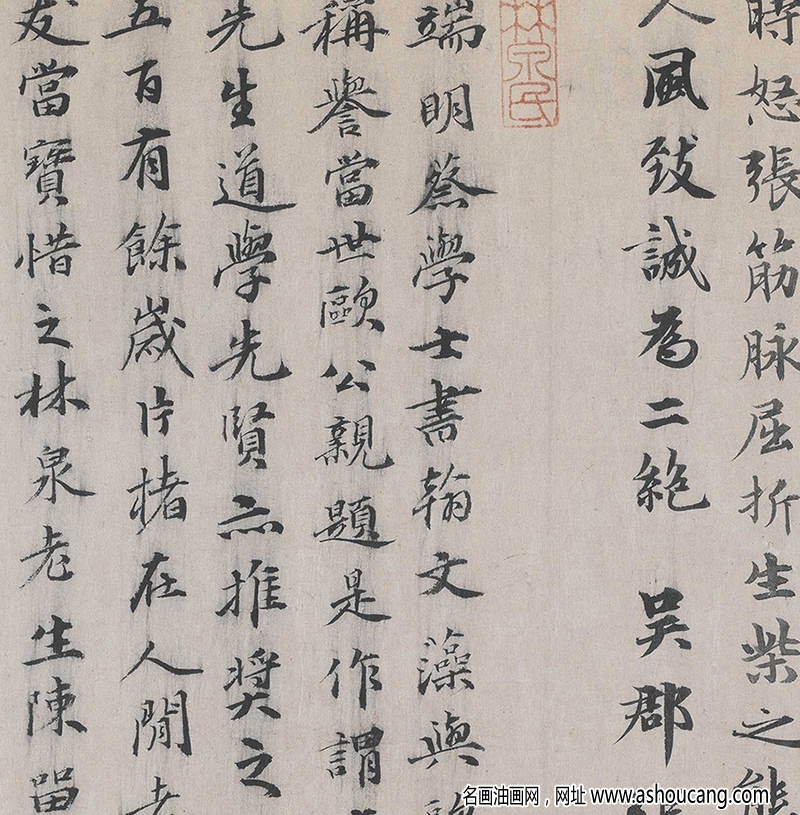 時怒張筋脉屈折生柴之態
人風致誠為二絶 吳郡張
林泉民
端明蔡學士書翰文藻與
稱譽當世歐公親題是作謂
先生道學先賢亦推奨之
五百有餘歲片楮在人間
友當寶惜之林泉老生陳留
名画油画网，网址 www.ashoucang.com